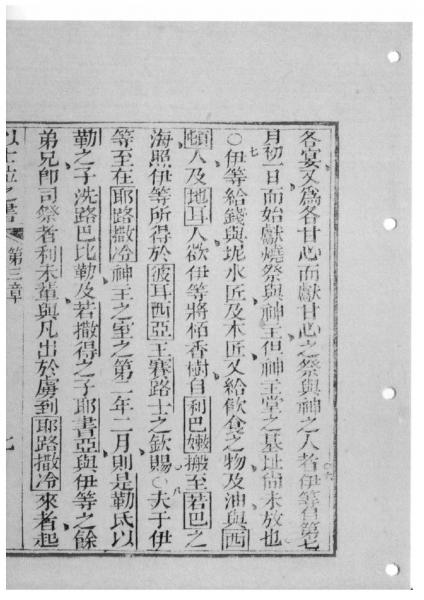 各宴又為各甘心而獻甘心之祭與神之人者六伊等自第七
月初一日而始獻燒祭與神主但神主堂之基址尚未放也
七〇伊等給錢與坭水匠及木匠又給飲食之物及油與西
頓人及地耳人欲伊等將栢香樹自利巴嫩搬至若巴之
海照伊等所得於彼耳西亞王賽路士之欽賜八〇夫于伊
等至在耶路撒冷神主之室之第二年二月則是勒氏以
勒之子洗路巴比勒及若撒得之子耶書亞與伊等之餘
弟兄即司祭者利未輩與凡出於虜到耶路撒冷來者起
以士拉之書 第三章 七